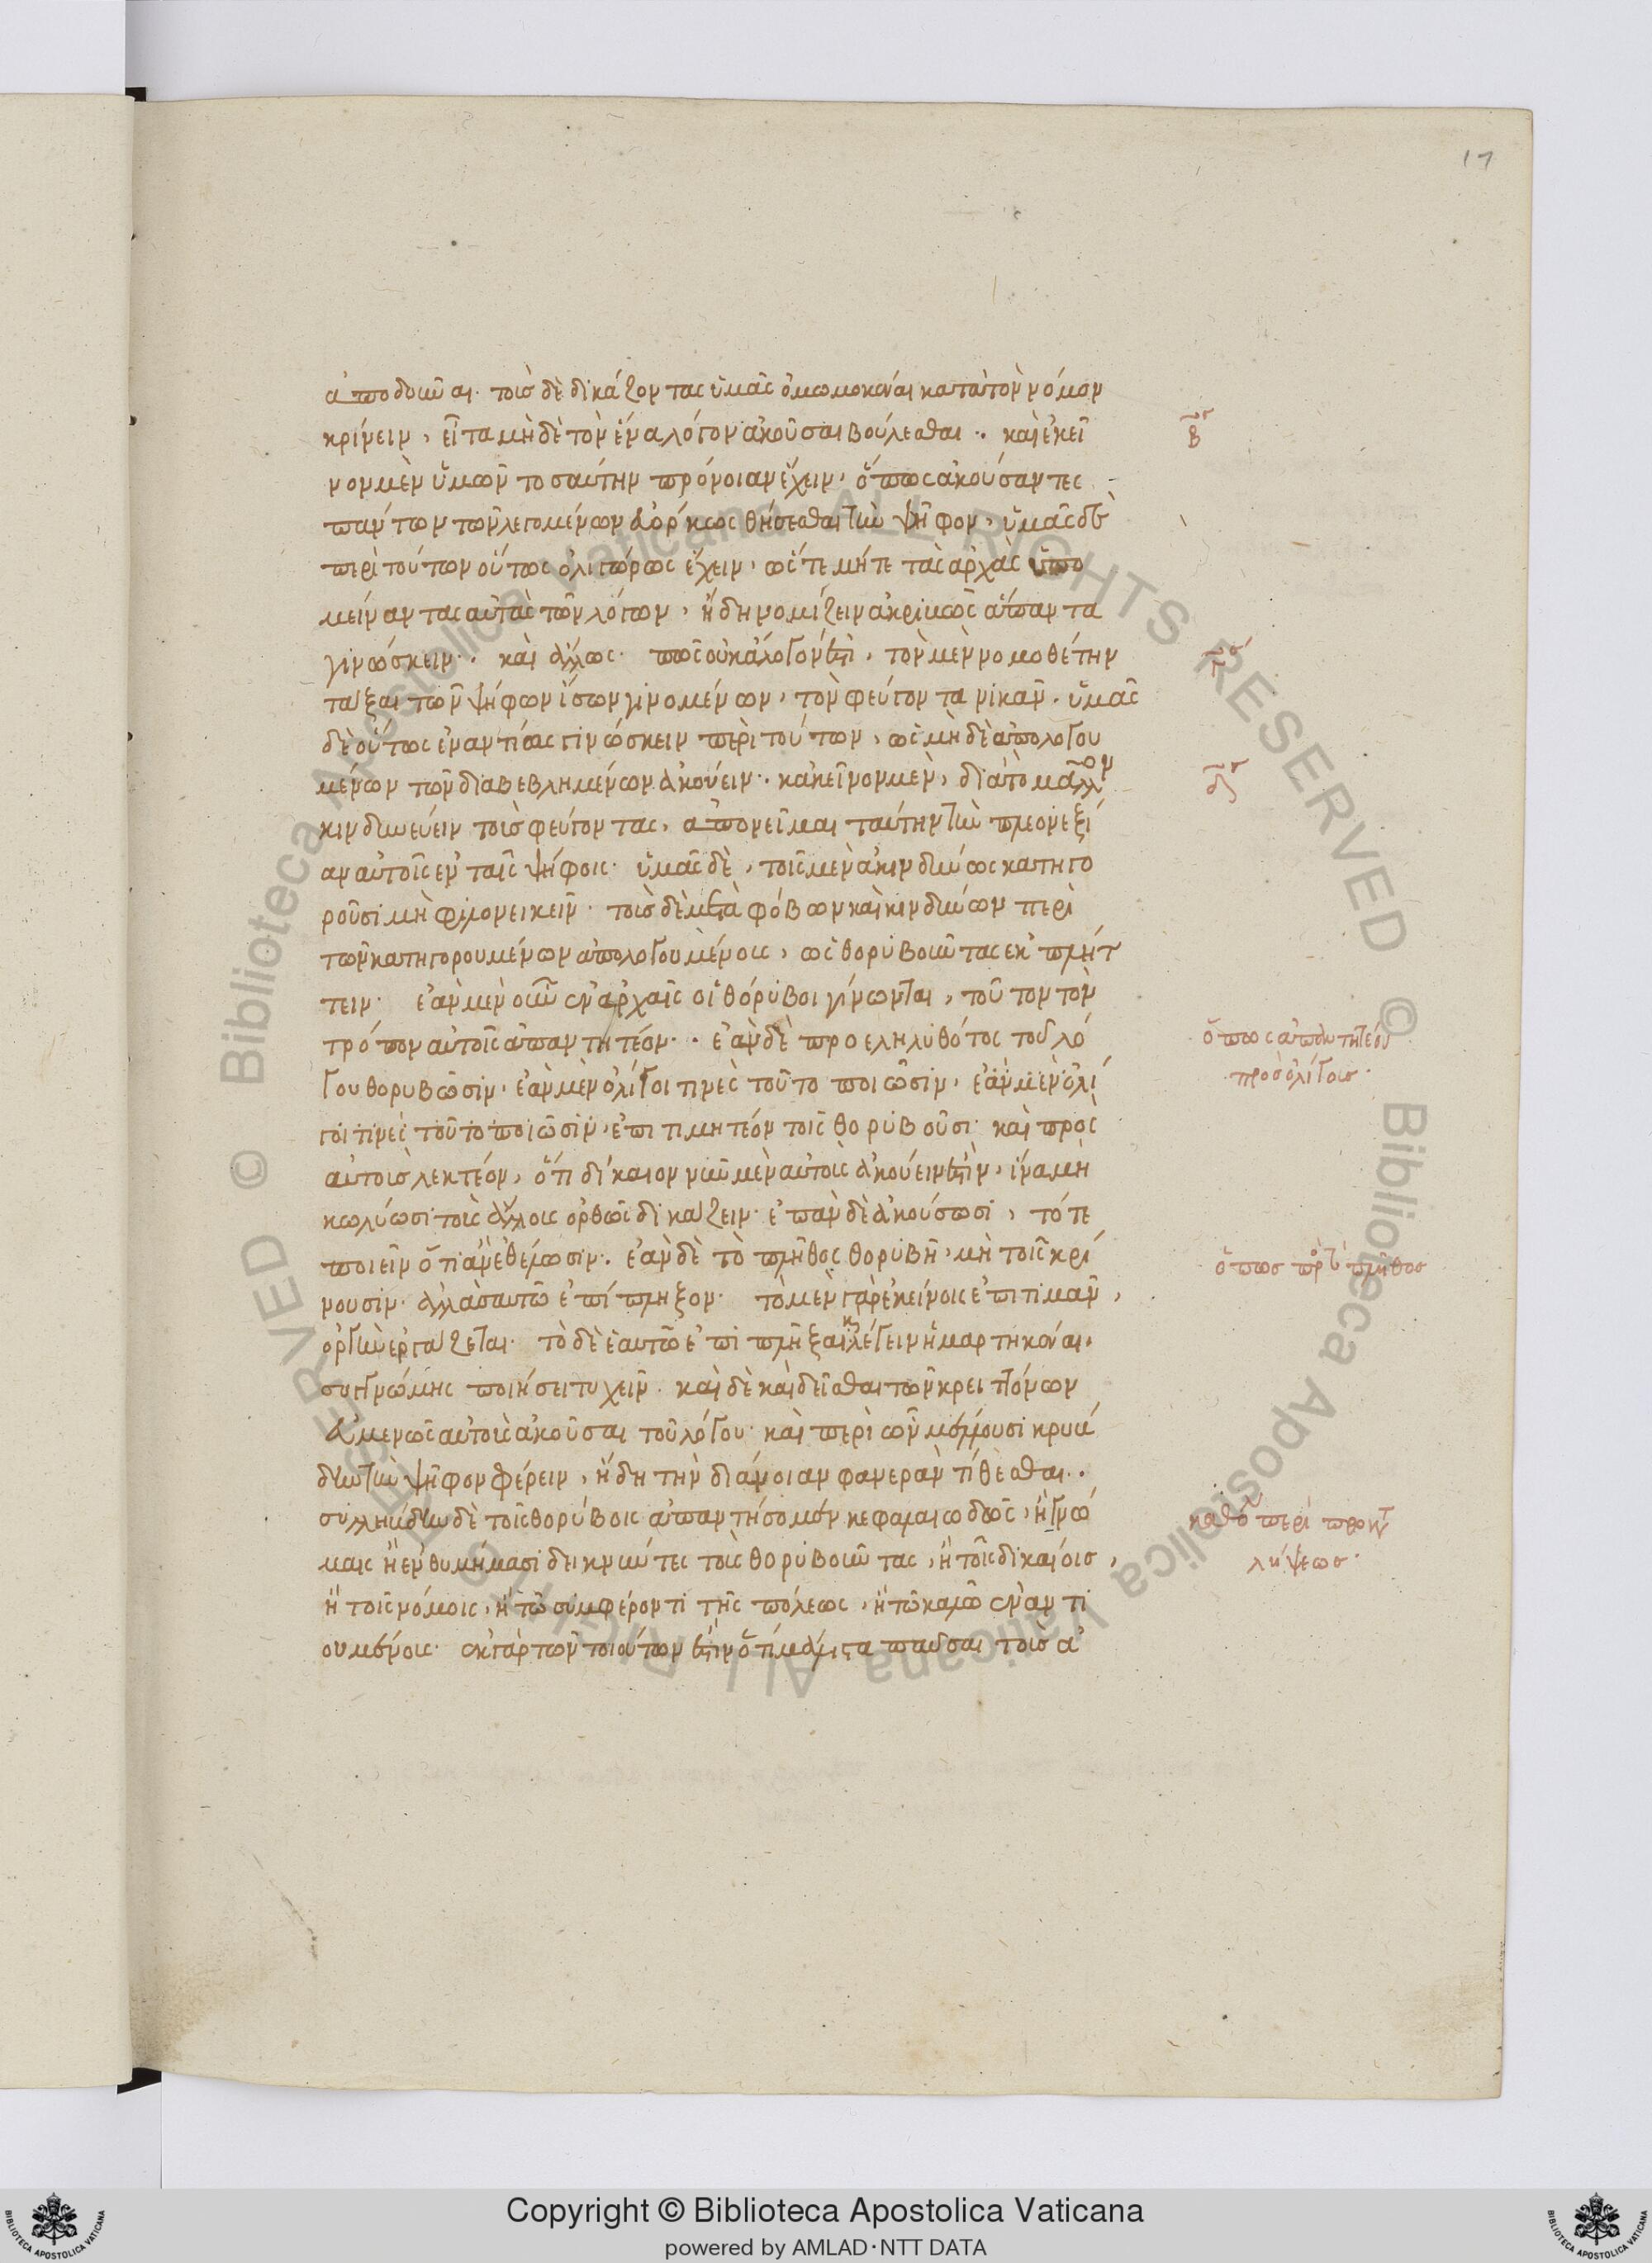 17
ἀποδοῦναι. τοὺς δὲ δικάζοντας ὑμᾶς ὀμωμοκέναι κατὰ τὸν νόμον
κρίνειν, εἶτα μηδὲ τὸν ἕνα λόγον ἀκοῦσαι βούλεσθαι. καὶ ἐκεῖ
β
νον μὲν ὑμῶν τοσαύτην πρόνοιαν ἔχειν, ὅπως ἀκούσαντες
πάντων τῶν λεγομένων εὐόρκως θήσεσθαι τὴν ψῆφον, ὑμᾶς δὲ
περὶ τούτων οὕτως ὀλιγώρως ἔχειν, ὥστε μήτε τὰς ἀρχὰς ὑπο
μείναντας αὐτὰς τῶν λόγων, ἤδη νομίζειν ἀκριβῶς ἅπαντα
γινώσκειν. καὶ ἄλλως. πῶς οὐκ ἄλογόν ἐστι, τὸν μὲν νομοθέτην
τάξαι τῶν ψήφων ἴσων γινομένων, τὸν φεύγοντα νικᾶν. ὑμᾶς
δὲ οὕτως ἐναντίως γινώσκειν περὶ τούτων, ὡς μηδὲ ἀπολογου
μένων τῶν διαβεβλημένων ἀκούειν. κἀκεῖνον μὲν, διὰ τὸ μᾶλλον
κινδυνεύειν τοὺς φεύγοντας, ἀπονεῖμαι ταύτην τὴν πλεονεξί
αν αὐτοῖς ἐν ταῖς ψήφοις. ὑμᾶς δὲ, τοῖς μὲν ἀκινδύνως κατηγο
ροῦσι μὴ φιλονεικεῖν. τοὺς δὲ μετὰ φόβων καὶ κινδύνων περὶ
τῶν κατηγορουμένων ἀπολογουμένοις, ὡς θορυβοῦντας ἐκπλήτ
τειν. ἐὰν μὲν οὖν ἐν ἀρχαῖς οἱ θόρυβοι γίνωνται, τοῦτον τὸν
τρόπον αὐτοῖς ἀπαντητέον. ἐὰν δὲ προεληλυθότος τοῦ λό
ὅπως ἀπαντητέον
πρὸς ὀλίγους.
γου θορυβῶσιν, ἐὰν μὲν ὀλίγοι τινὲς τοῦτο ποιῶσιν, ἐὰν μὲν ὀλί
γοι τινὲς τοῦτο ποιῶσιν, ἐπιτιμητέον τοῖς θορυβοῦσι. καὶ πρὸς
αὐτοὺς λεκτέον, ὅτι δίκαιον νῦν μὲν αὐτοὺς ἀκούειν ἐστὶν, ἵνα μὴ
κωλύωσι τοὺς ἄλλους ὀρθῶς δικάζειν. ἐπὰν δὲ ἀκούσωσι, τότε
ποιεῖν ὅτι ἂν ἐθέλωσιν. ἐὰν δὲ τὸ πλῆθος θορυβῇ, μὴ τοῖς κρί
ὅπως πρὸς τὸ πλῆθος
νουσιν. ἀλλὰ σαυτῷ ἐπίπληξον. τὸ μὲν γὰρ ἐκείνοις ἐπιτιμᾶν,
ὀργὴν ἐργάζεται. τὸ δὲ ἑαυτῷ ἐπιπλῆξαι κ λέγειν ἡμαρτηκέναι.
συγγνώμης ποιήσει τυχεῖν. καὶ δὲ καὶ δεῖσθαι τῶν κρειττόνων
εὐμενῶς αὐτοὺς ἀκοῦσαι τοῦ λόγου. καὶ περὶ ὧν μέλλουσι κρυβ
δην τὴν ψῆφον φέρειν, ἤδη τὴν διάνοιαν φανερὰν τίθεσθαι.
συλλήβδην δὲ τοῖς θορύβοις ἀπαντήσομεν κεφαλαιωδῶς, ἢ γνώ
καθόλου περὶ προκατ
λήψεως.
μαις ἢ ἐνθυμήμασι δεικνύντες τοὺς θορυβοῦντας, ἢ τοῖς δικαίοις,
ἢ τοῖς νόμοις, ἢ τῷ συμφέροντι τῆς πόλεως, ἢ τῷ καλῷ ἐναντι
ουμένους. ἐκ γὰρ τῶν τοιούτων ἐστὶν ὅτι μάλιστα παῦσαι τοὺς ἀ
© Biblioteca Apostolica Vaticana ALL RIGHTS RESERVED © Biblioteca Apostolica Vaticana ALL RIGHTS RESERVED
Copyright © Biblioteca Apostolica Vaticana
powered by AMLAD・NTT DATA
BIBLIOTECA APOSTOLICA VATICANA
BIBLIOTECA APOSTOLICA VATICANA